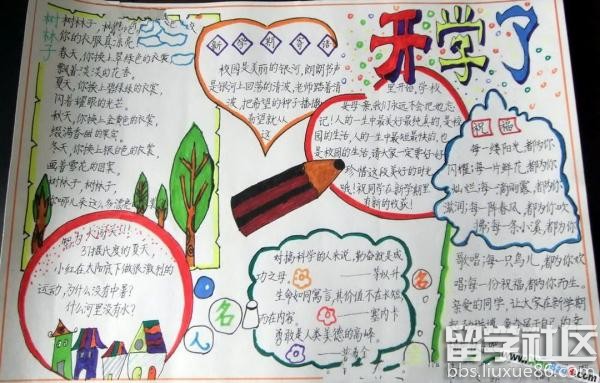 开学了
树林子
树林子,树林子,
你的衣服真漂亮
春天,你换上翠绿色的衣裳
飘着淡淡的花香。
夏天,你换上碧绿的衣裳
闪着耀眼的光芒。
秋天,你换上金黄色的衣裳
缀满香甜的果实。
冬天,你换上银白色的衣裳
画着雪花的图案。
树林子,树林子,
新学期寄语
校园是美丽的银河,朗朗书声
是银河上回荡的清波,老师踏着清
波,把希望的种子播撒
希望就从
这
里开始,学校
是母亲,我们永远不会把她忘
记!人的一生中最美好最纯真的是校
园的生活,人的一生中最短最快的,也
是校园的生活,请大家一定要好好
珍惜这段美好的时光
哦!祝同学在新学期里
有新的收获!
祝福
每一缕阳光,都为你
闪耀;每一片鲜花,都为你
灿烂;每一滴雨露,都为你
滋润;每一阵春风,都为你吹
拂;每一条小溪,都为你
歌唱;每一只鸟儿,都为你欢
唱;每一份祝福,都为你而生。
亲爱的同学,让大家在新学期
智力大闯关!!
31摄氏度的夏天,
小红在太阳底下做很激烈的
运动,为什么没有中暑?
什么河里没有水?
名人名言
对搞科学的人来说,勤奋就是成
功之母。
——茅以升
生命如同寓言,其价值不在长短,
而在内容。
——塞内卡
勇敢是人类美德的高峰。
留学社区
bbs.liuxue86.com